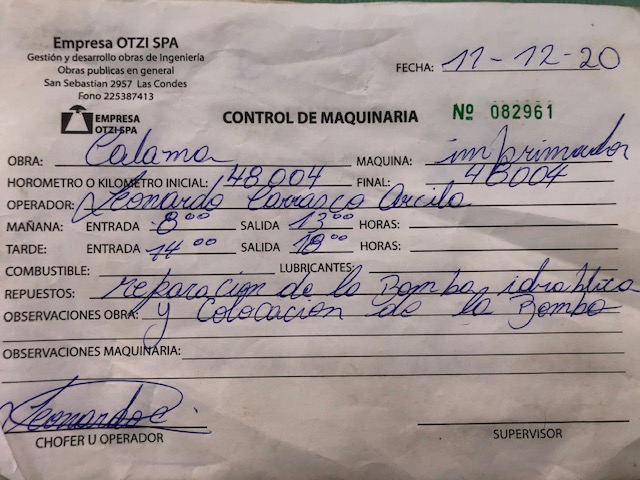 Empresa OTZI SPA
Gestión y desarrollo obras de Ingeniería
Obras publicas en general
San Sebastian 2957 Las Condes
Fono 225387413
FECHA: 11-12-20
EMPRESA
OTZI·SPA
CONTROL DE MAQUINARIA
Nº 082961
OBRA: Calama MAQUINA: imprimador
HOROMETRO O KILOMETRO INICIAL: 48004 FINAL: 48004
OPERADOR: Leonardo Carrasco
MAÑANA: ENTRADA 8:00 SALIDA 13:00 HORAS:
TARDE: ENTRADA 14:00 SALIDA 18:00 HORAS:
COMBUSTIBLE: LUBRICANTES:
REPUESTOS: reparacion de la Bomba
OBSERVACIONES OBRA: y Colocacion de la Bomba
OBSERVACIONES MAQUINARIA:
CHOFER U OPERADOR
SUPERVISOR